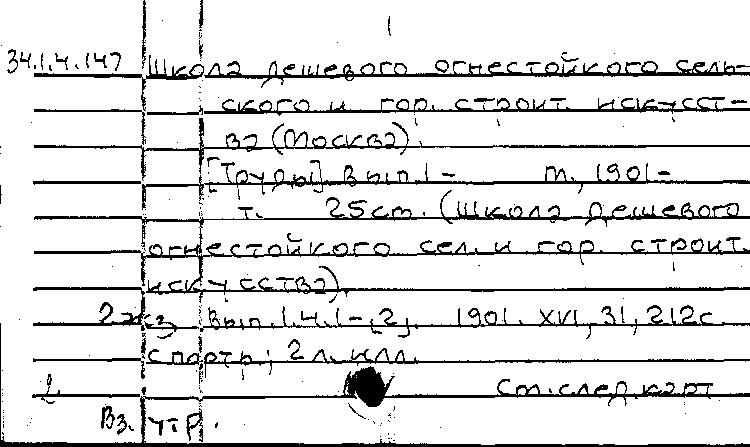 1
34.1.4.147 Школа дешевого огнестойкого сель-
ского и гор. строит. искусст-
ва (Москва).
[Труды]. Вып. 1- М., 1901-
т. 25 cm. (Школа дешевого
огнестойкого сел. и гор. строит.
искусства).
2 экз. Вып. 1. Ч. 1-[2]. 1901. XVI, 31, 212 с
с портр; 2 л. илл.
2. См. след. карт
Вз. утр.